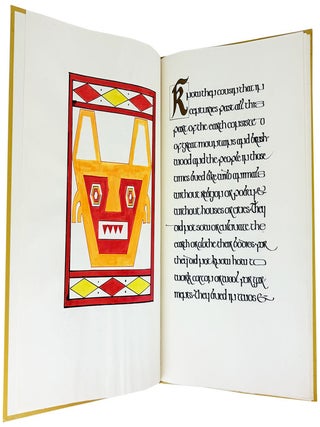 Know then cousin that in
centuries past all this
part of the earth consisted
of great mountains and brush
wood and the people in those
times lived like wild animals
without religion or polity &
without houses or cities They
did not sow or cultivate the
earth or clothe their bodies for
they did not know how to
work cotton or wool for gar
ments They lived in twos &